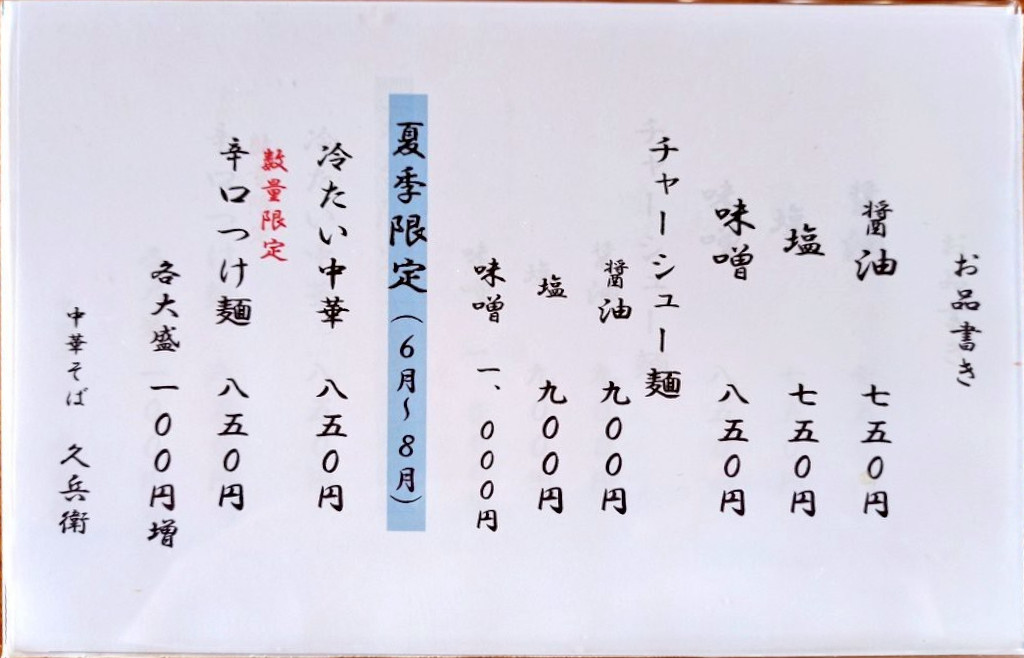 お品書き
醤油 七五〇円
塩 七五〇円
味噌 八五〇円
チャーシュー麺
醤油 九〇〇円
塩 九〇〇円
味噌 一、〇〇〇円
夏季限定(6月~8月)
冷たい中華 八五〇円
数量限定
辛口つけ麺 八五〇円
各大盛 一〇〇円増
中華そば 久兵衛